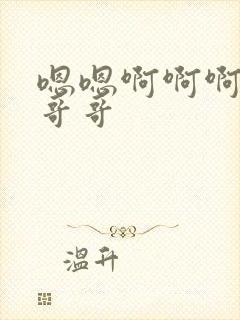 嗯嗯啊啊啊
哥哥
温升